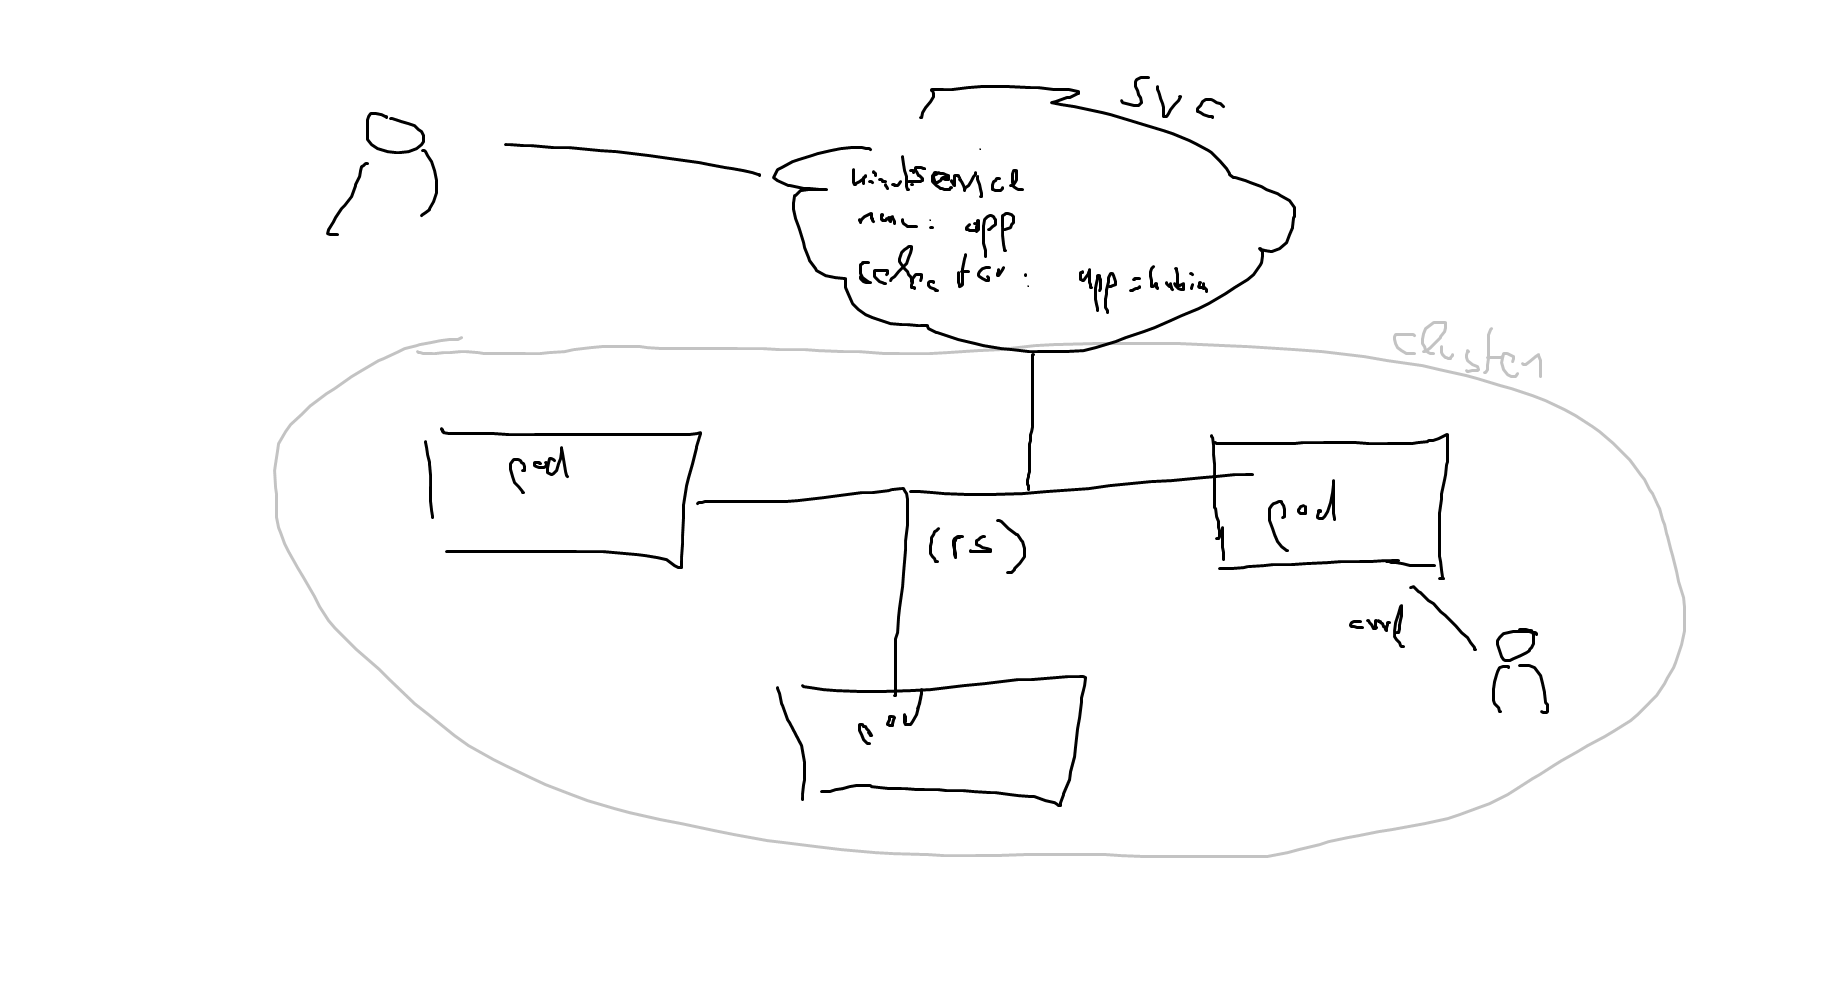 svc
kind:service
name: app
selector: app=kubia
cluster
pod
pod
(rs)
curl
pod